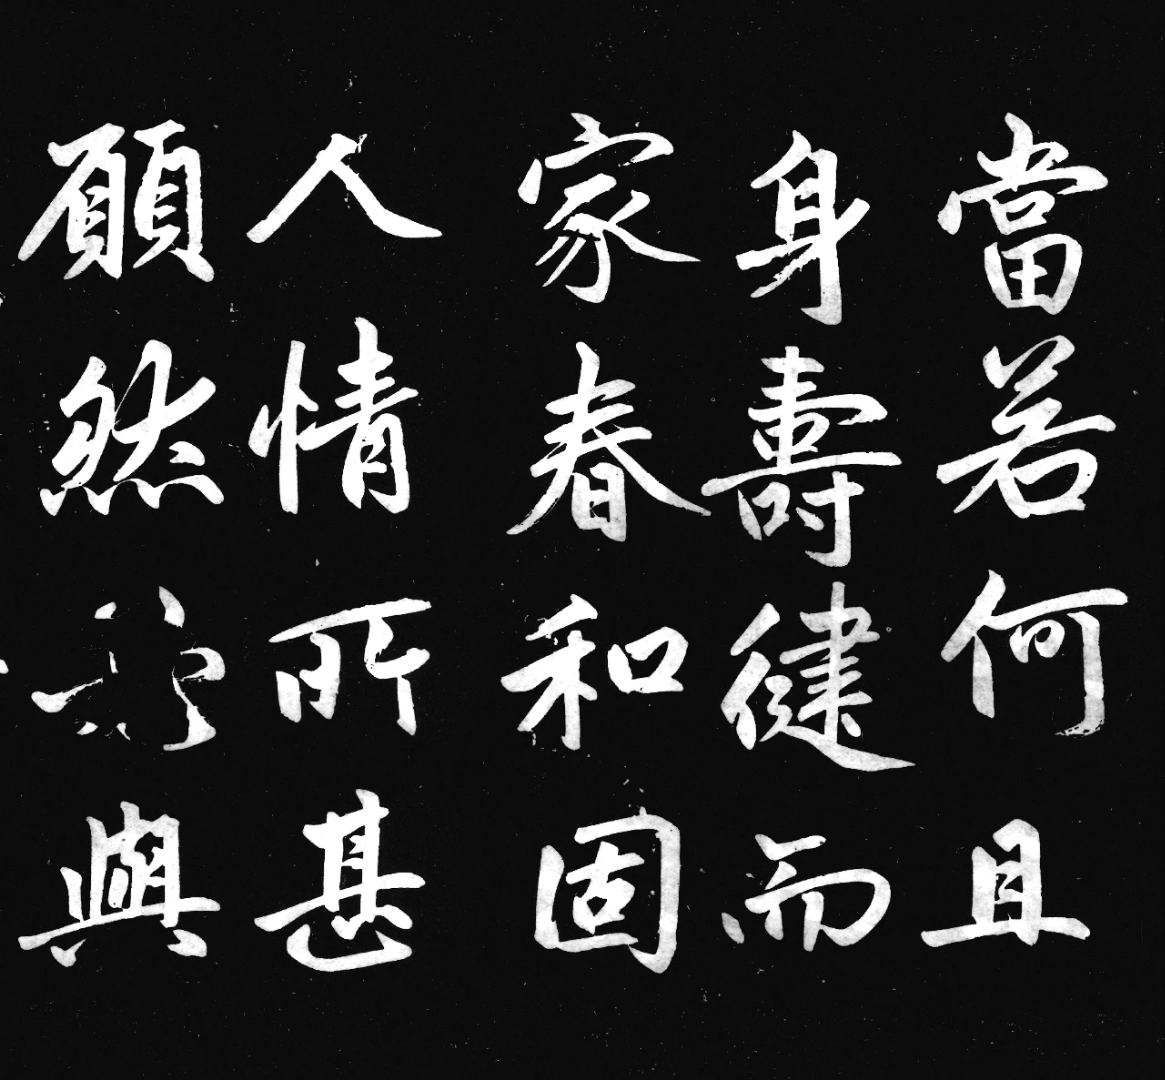 當若何且
身壽健而
家春和固
人情所甚
願然與